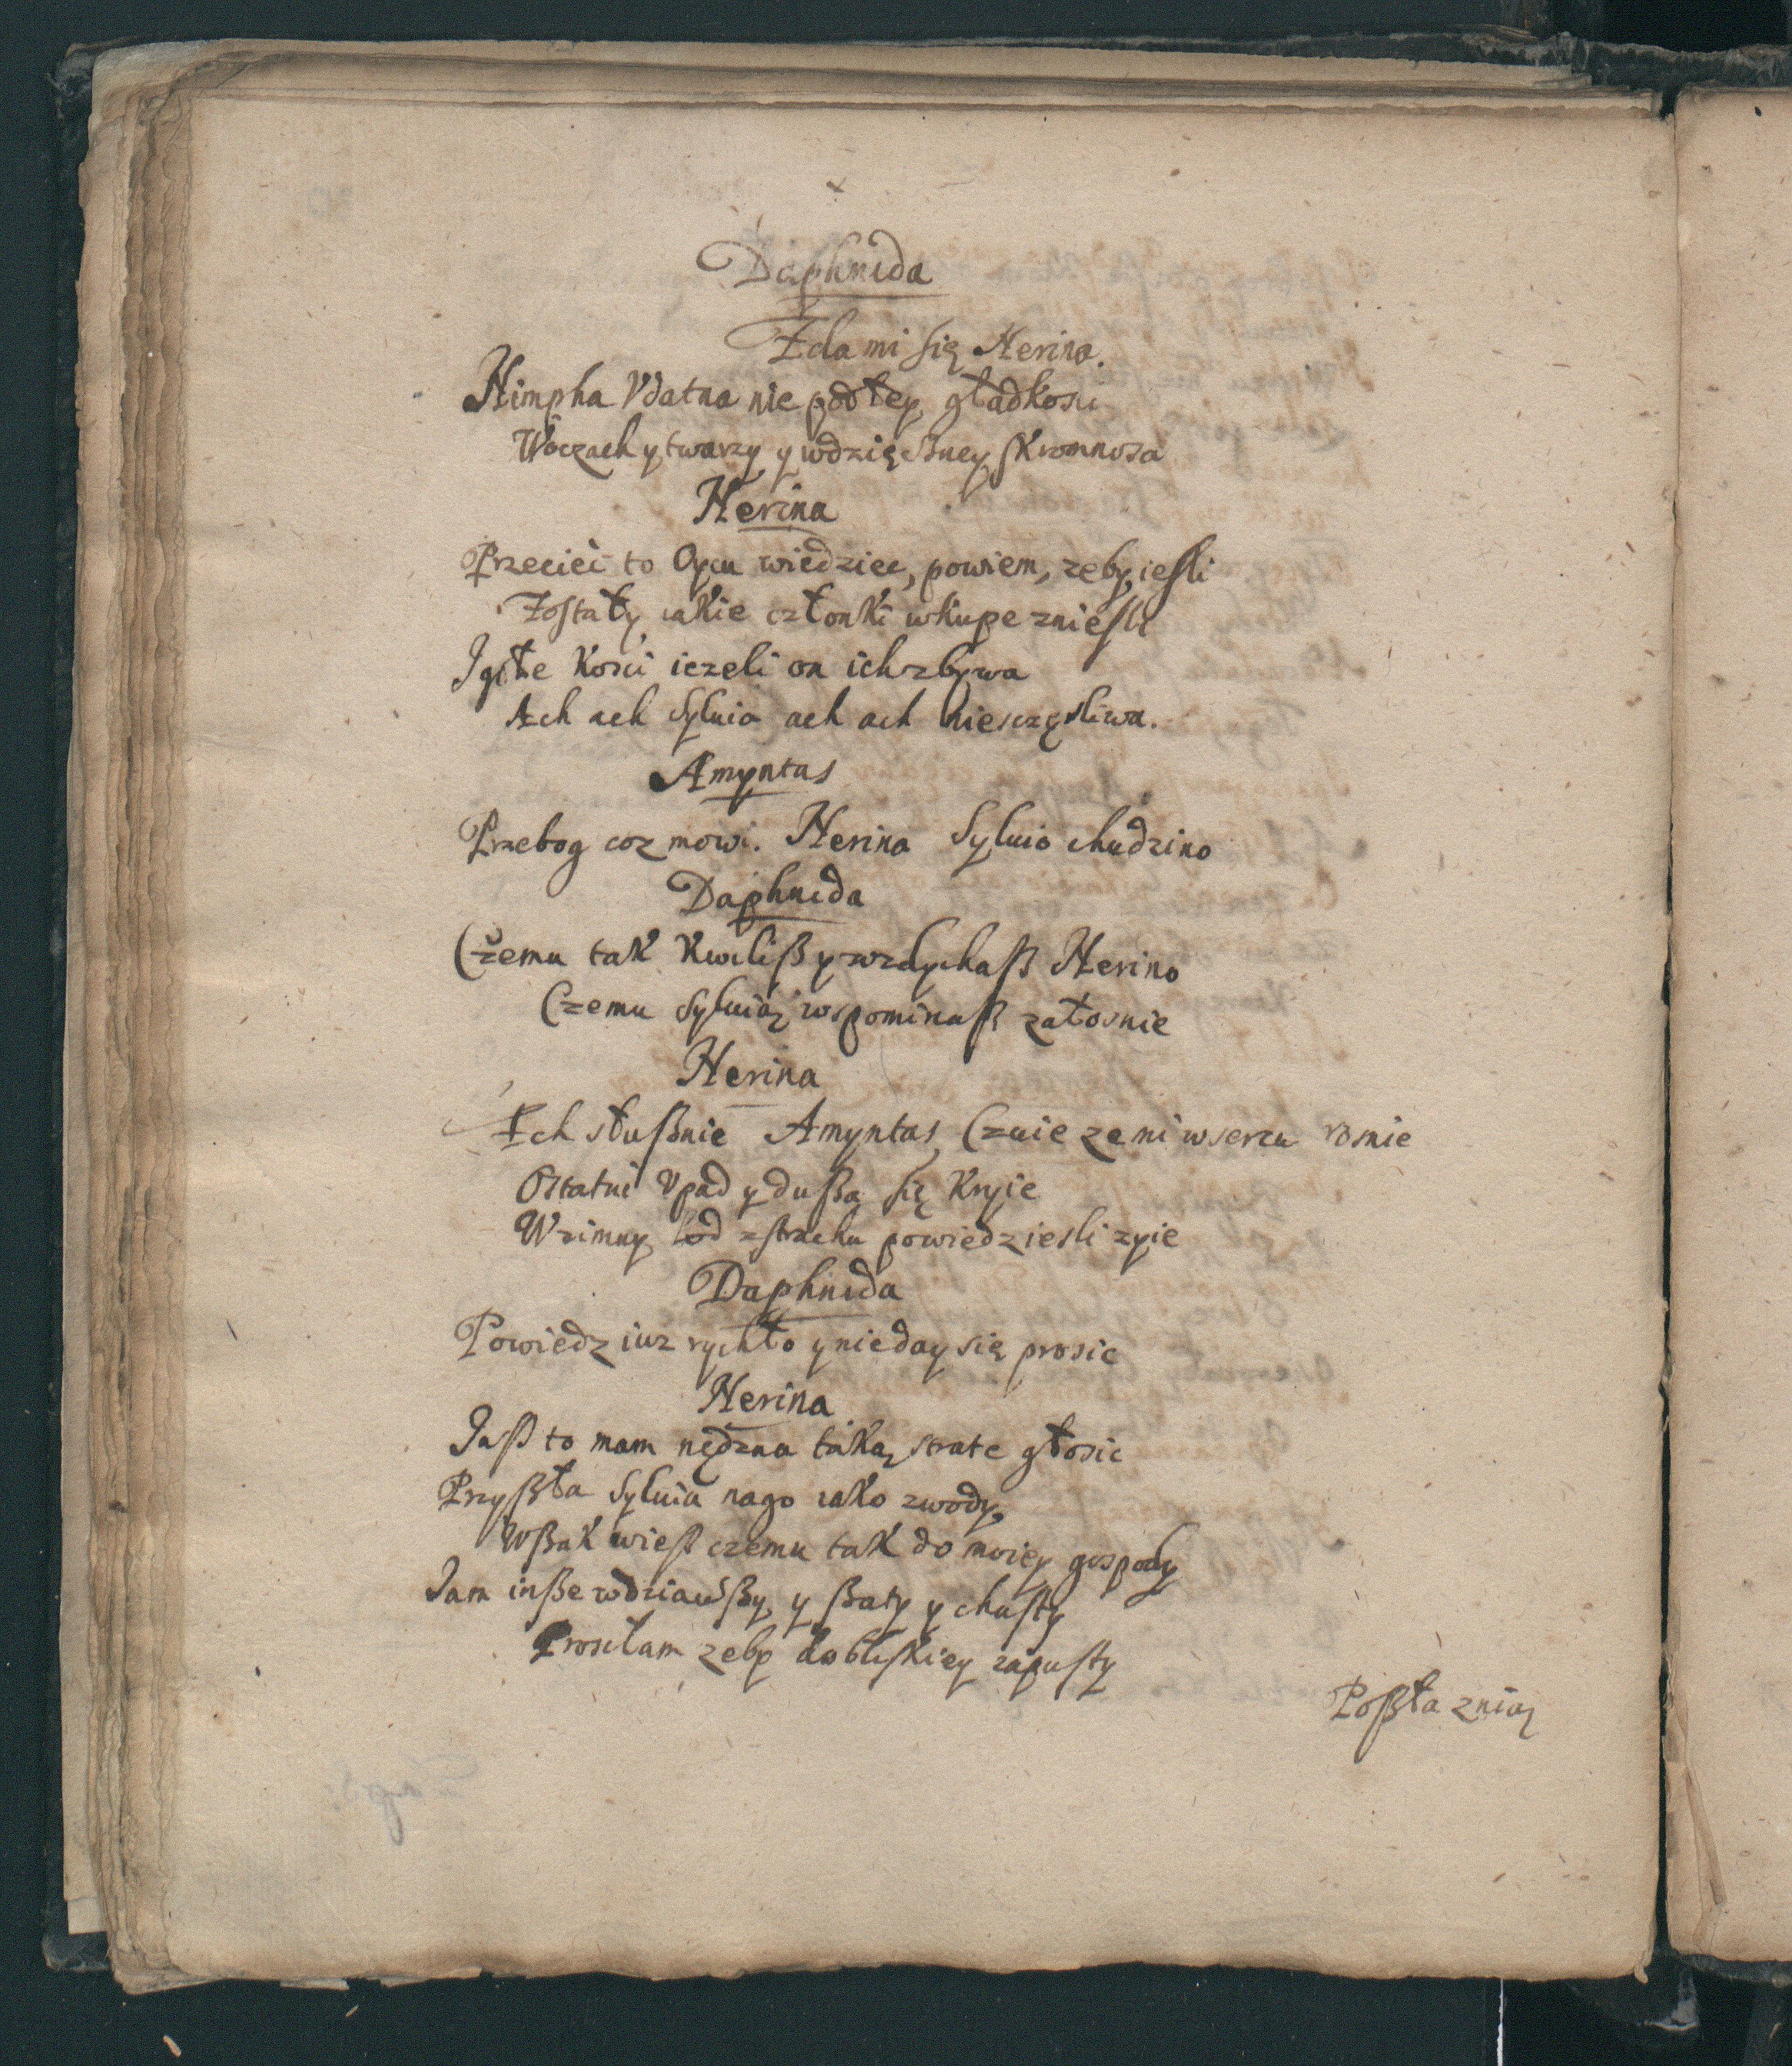 Daphnida
Zda mi się Nerina.
Nimpha Vdatna nie podłey gładkosci
Woczach y twarzy y wdzięczney skromnosci
Nerina
Przecieć to Oycu wiedziec, powiem, zeby iesli
Zostały iakie członki wkupe zniesli
I gołe kosci iezeli on ich zbywa
Ach ach Sylvia ach ach niesczęsliwa.
Amyntas
Przebog coz mowi. Nerina Sylvio chudzino
Daphnida
Czemu tak kwiliß y wzdychaß Nerino
Czemu Sylvią wspominaß załosnie
Nerina
Ech słußnie Amyntas Czuie ze mi wsercu rosnie
Ostatni Vpad y dußa się kryie
Wzimny lod zstrachu powiedz iesli zyie
Daphnida
Powiedz iuz rychło y nieday się prosic
Nerina
Jaß to mam nędzna taką strate głosic
Przyßła Sylvia nago iako zwody,
Wßak wieß czemu tak do moiey gospody
Tam inße wdziawßy, y ßaty y chusty
Prosiłam zeby do bliskiey zapusty
Poßła znią